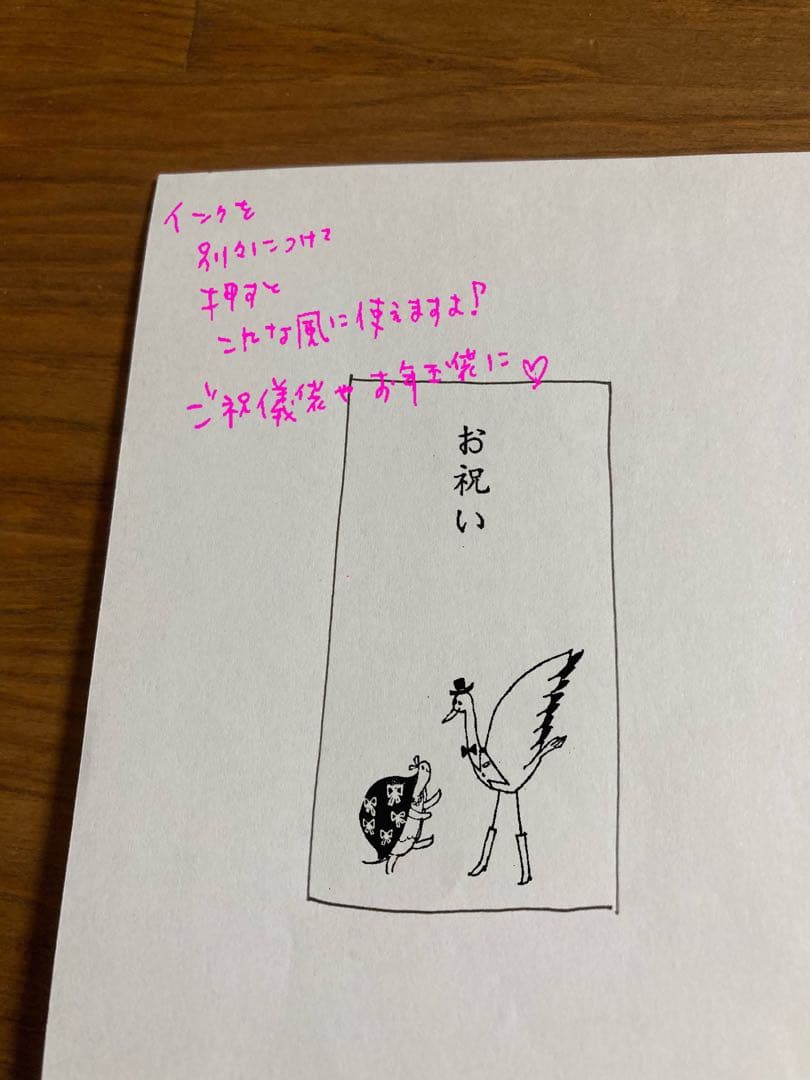 インクを
別々につけて
押すと
こんな風に使えますよ!
ご祝儀袋やお年玉袋に♡
お祝い